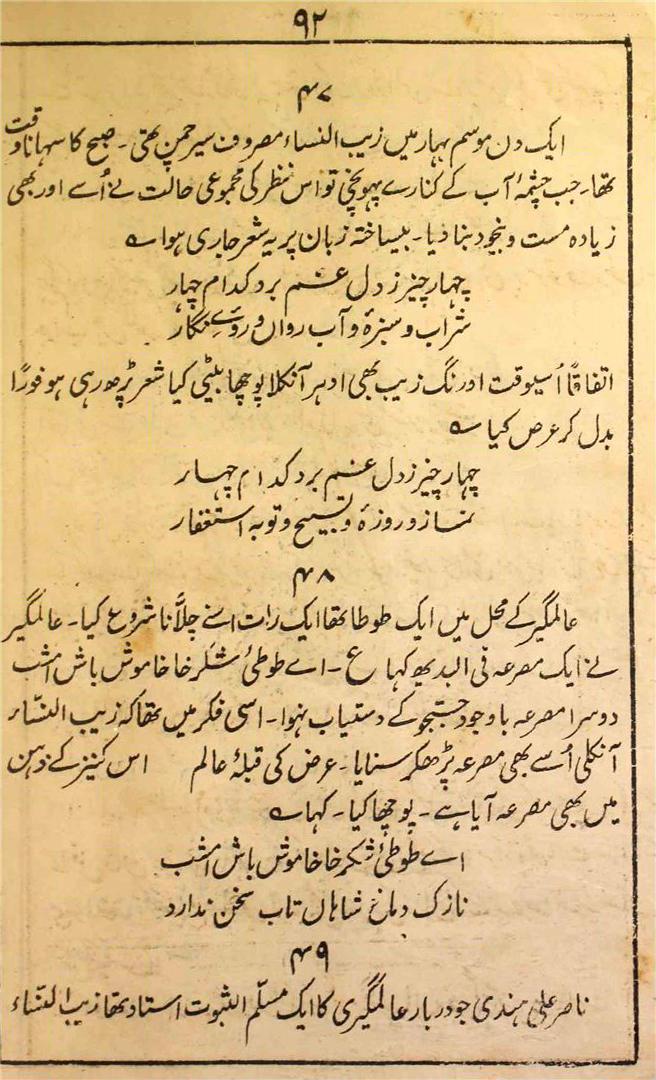 ۹۲
۴۷
ایک دن موسم بہار میں زیب النساء مصروف سیر چمن تھی۔ صبح کا سہانا وقت
تھا۔ جب چشمۂ آب کے کنارے پہونچی تو اس منظر کی مجموعی حالت نے اُسے اور بھی
زیادہ مست و بیخود بنا دیا۔ بیساختہ زبان پر یہ شعر جاری ہوا ؎
چہار چیز ز دل غم برد کدام چہار
شراب و سبزہ و آب رواں و روئے نگار
اتفاقاً اُسیوقت اورنگ زیب بھی ادہر آنکلا پوچھا بیٹی کیا شعر پڑھ رہی ہو فوراً
بدل کر عرض کیا ؎
چہار چیز ز دل غم برد کدام چہار
نماز و روزہ و تسبیح و توبہ استغفار
۴۸
عالمگیر کے محل میں ایک طوطا تھا ایک رات اسنے چلّانا شروع کیا۔ عالمگیر
نے ایک مصرعہ فی البدیہ کہا ع۔ اے طوطیٔ شکر خا خاموش باش امشب
دوسرا مصرعہ باوجود جستجو کے دستیاب نہوا۔ اسی فکر میں تھا کہ زیب النساء
آنکلی اُسے بھی مصرعہ پڑھکر سنایا۔ عرض کی قبلۂ عالم اس کنیز کے ذہن
میں بھی مصرعہ آیا ہے۔ پوچھا کیا۔ کہا ؎
اے طوطیٔ شکر خا خاموش باش امشب
نازک دماغ شاہاں تاب سخن ندارد
۴۹
ناصر علی ہندی جو دربار عالمگیری کا ایک مسلّم الثبوت استاد تھا زیب النساء